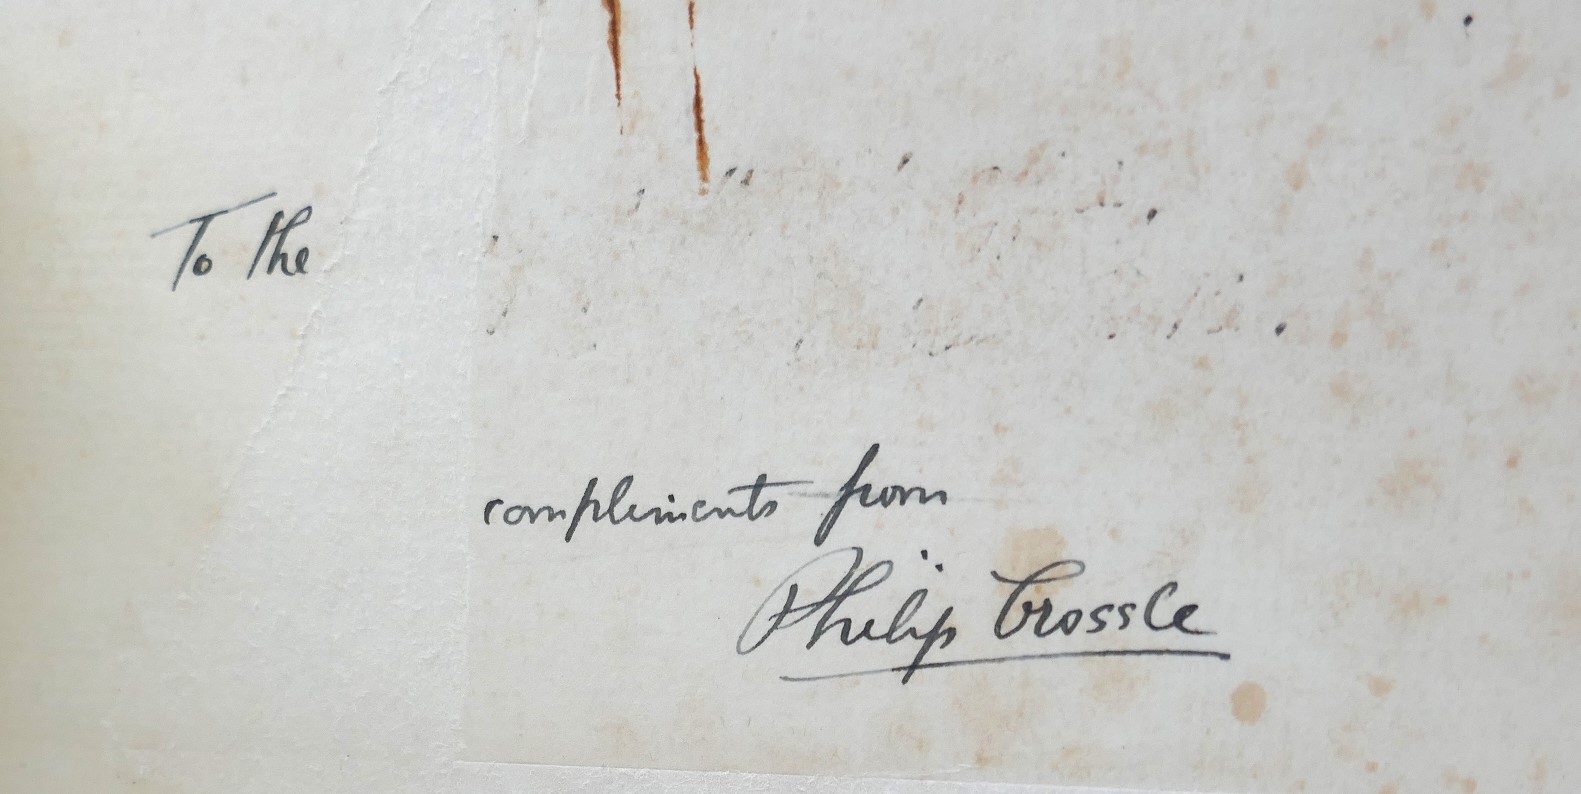 To the
compliments from
Philip Crossle